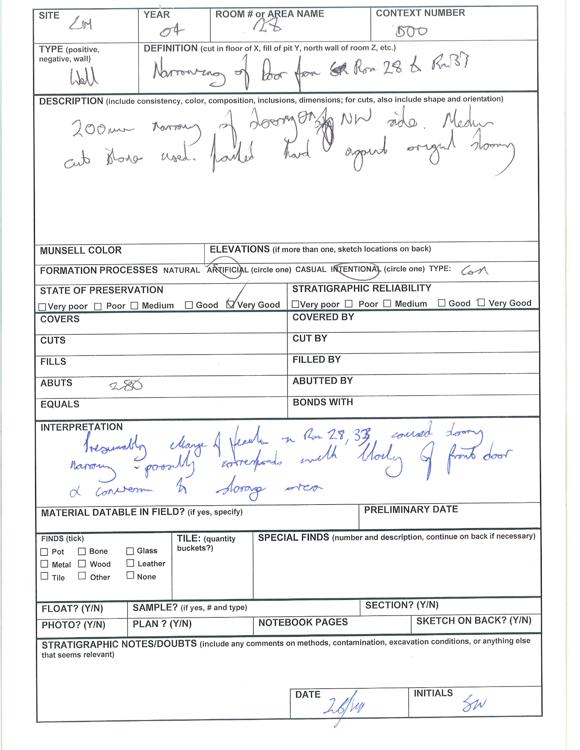 SITE
YEAR
ROOM # or AREA NAME
CONTEXT NUMBER
LM
04
28
500
TYPE (positive, negative, wall)
DEFINITION (cut in floor of X, fill of pit Y, north wall of room Z, etc.)
Wall
Narrowing of Door from Rm 28 to Rm 33
DESCRIPTION (include consistency, color, composition, inclusions, dimensions; for cuts, also include shape and orientation)
200mm narrowing of doorway on NW side. Medium
cut stone used. hard against original doorway
MUNSELL COLOR
ELEVATIONS (if more than one, sketch locations on back)
FORMATION PROCESSES NATURAL ARTIFICIAL (circle one) CASUAL INTENTIONAL (circle one) TYPE: Con
STATE OF PRESERVATION
STRATIGRAPHIC RELIABILITY
Very poor Poor Medium Good Very Good
Very poor Poor Medium Good Very Good
COVERS
COVERED BY
CUTS
CUT BY
FILLS
FILLED BY
ABUTS 280
ABUTTED BY
EQUALS
BONDS WITH
INTERPRETATION
Presumably change of function in Rm 28, 33 caused doorway
narrowing - possibly corresponds with blocking of front door
& conversion to storage area
MATERIAL DATABLE IN FIELD? (if yes, specify)
PRELIMINARY DATE
FINDS (tick)
TILE: (quantity buckets?)
SPECIAL FINDS (number and description, continue on back if necessary)
Pot Bone Glass
Metal Wood Leather
Tile Other None
FLOAT? (Y/N)
SAMPLE? (if yes, # and type)
SECTION? (Y/N)
PHOTO? (Y/N)
PLAN ? (Y/N)
NOTEBOOK PAGES
SKETCH ON BACK? (Y/N)
STRATIGRAPHIC NOTES/DOUBTS (include any comments on methods, contamination, excavation conditions, or anything else
that seems relevant)
DATE
INITIALS
SW